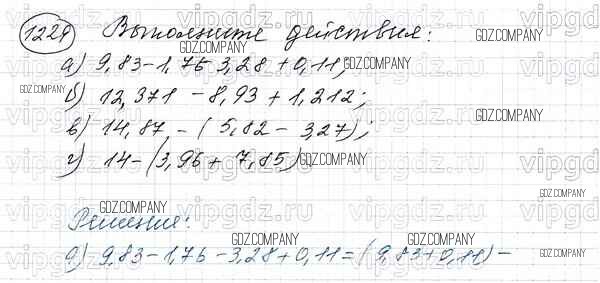 1229 Выполните действия:
а) 9,83-1,76-3,28+0,11;
б) 12,371 - 8,93 + 1,212;
в) 14,87 - (5,82 - 3,27);
г) 14-(3,96 + 7,85)
Решение:
а) 9,83-1,76-3,28+0,11=(9,83+0,11)-
GDZ.COMPANY
GDZ.COMPANY
GDZ.COMPANY
GDZ.COMPANY
GDZ.COMPANY
GDZ.COMPANY
GDZ.COMPANY
GDZ.COMPANY
GDZ.COMPANY
GDZ.COMPANY
vipgdz.ru